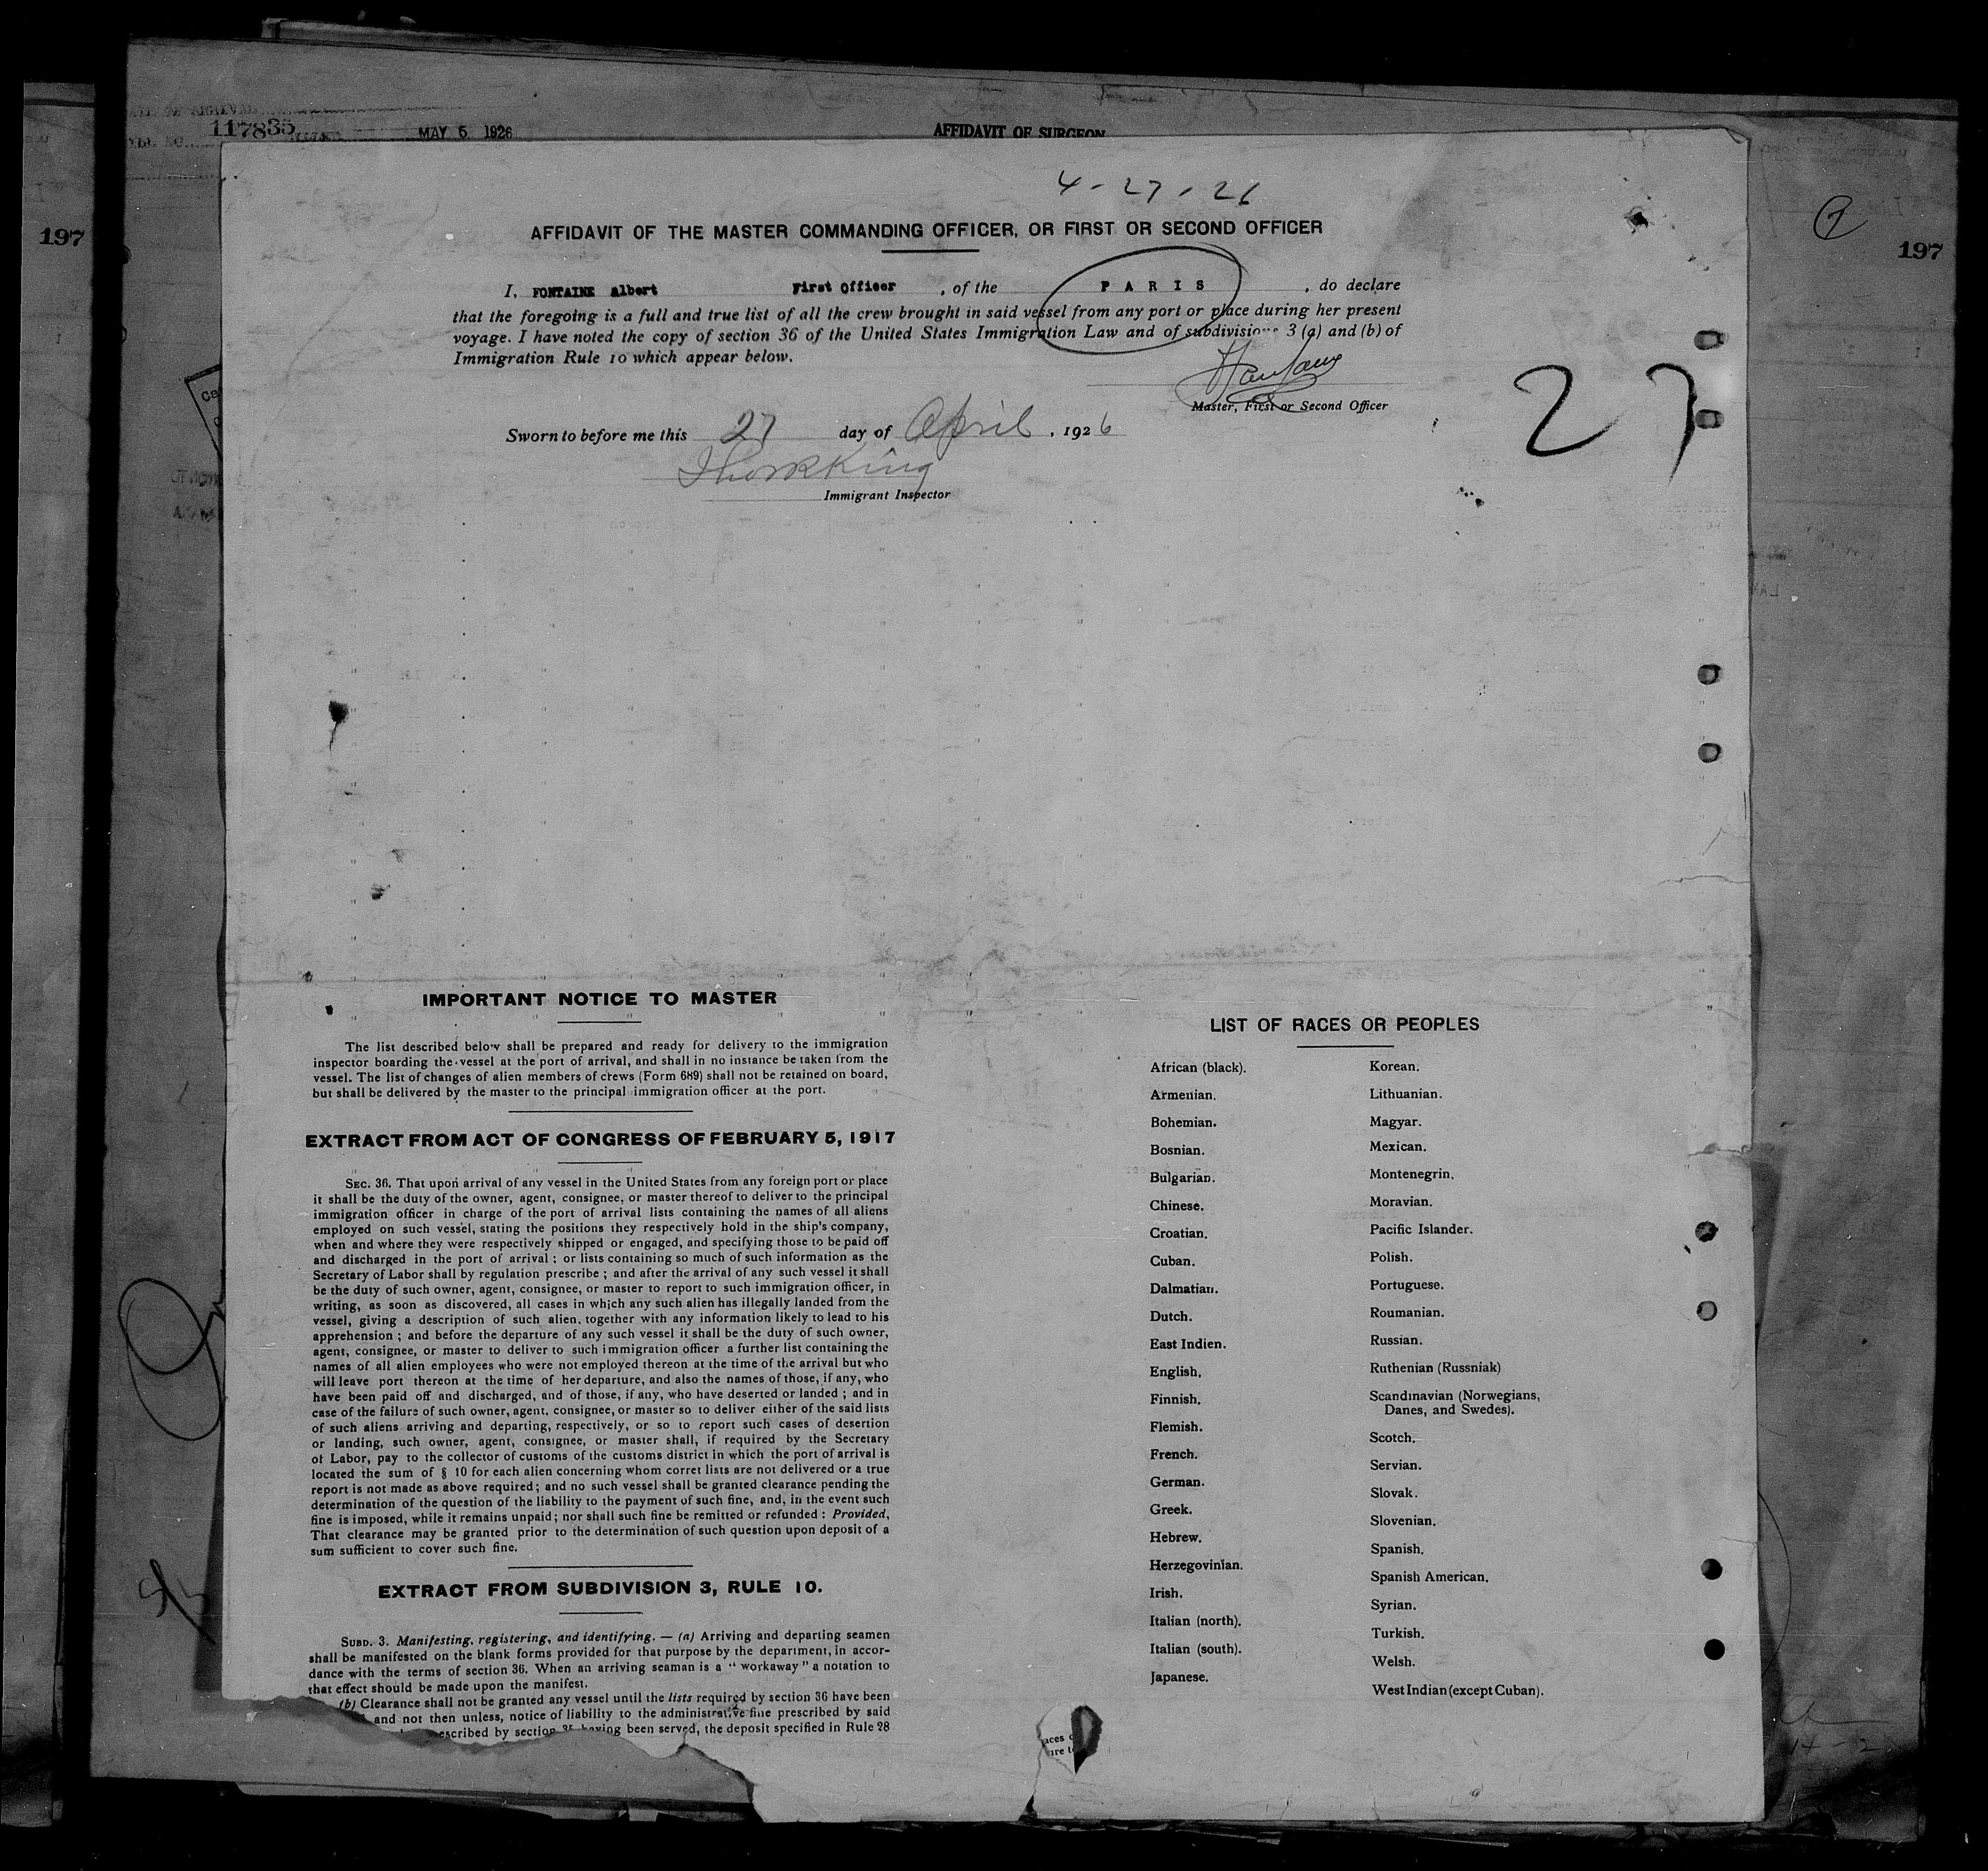 117835 MAY 5 1926 AFFIDAVIT OF SURGEON
197
197
4-27-26
AFFIDAVIT OF THE MASTER COMMANDING OFFICER, OR FIRST OR SECOND OFFICER
I, FONTAINE Albert First Officer , of the P A R I S , do declare
that the foregoing is a full and true list of all the crew brought in said vessel from any port or place during her present
voyage. I have noted the copy of section 36 of the United States Immigration Law and of subdivisions 3 (a) and (b) of
Immigration Rule 10 which appear below.
Master, First or Second Officer
27
Sworn to before me this 27 day of April , 1926
Immigrant Inspector
IMPORTANT NOTICE TO MASTER
The list described below shall be prepared and ready for delivery to the immigration
inspector boarding the vessel at the port of arrival, and shall in no instance be taken from the
vessel. The list of changes of alien members of crews (Form 689) shall not be retained on board,
but shall be delivered by the master to the principal immigration officer at the port.
EXTRACT FROM ACT OF CONGRESS OF FEBRUARY 5, 1917
SEC. 36. That upon arrival of any vessel in the United States from any foreign port or place
it shall be the duty of the owner, agent, consignee, or master thereof to deliver to the principal
immigration officer in charge of the port of arrival lists containing the names of all aliens
employed on such vessel, stating the positions they respectively hold in the ship's company,
when and where they were respectively shipped or engaged, and specifying those to be paid off
and discharged in the port of arrival ; or lists containing so much of such information as the
Secretary of Labor shall by regulation prescribe ; and after the arrival of any such vessel it shall
be the duty of such owner, agent, consignee, or master to report to such immigration officer, in
writing, as soon as discovered, all cases in which any such alien has illegally landed from the
vessel, giving a description of such alien, together with any information likely to lead to his
apprehension ; and before the departure of any such vessel it shall be the duty of such owner,
agent, consignee, or master to deliver to such immigration officer a further list containing the
names of all alien employees who were not employed thereon at the time of the arrival but who
will leave port thereon at the time of her departure, and also the names of those, if any, who
have been paid off and discharged, and of those, if any, who have deserted or landed ; and in
case of the failure of such owner, agent, consignee, or master so to deliver either of the said lists
of such aliens arriving and departing, respectively, or so to report such cases of desertion
or landing, such owner, agent, consignee, or master shall, if required by the Secretary
of Labor, pay to the collector of customs of the customs district in which the port of arrival is
located the sum of § 10 for each alien concerning whom corret lists are not delivered or a true
report is not made as above required ; and no such vessel shall be granted clearance pending the
determination of the question of the liability to the payment of such fine, and, in the event such
fine is imposed, while it remains unpaid ; nor shall such fine be remitted or refunded : Provided,
That clearance may be granted prior to the determination of such question upon deposit of a
sum sufficient to cover such fine.
EXTRACT FROM SUBDIVISION 3, RULE 10.
SUBD. 3. Manifesting, registering, and identifying. — (a) Arriving and departing seamen
shall be manifested on the blank forms provided for that purpose by the department, in accor-
dance with the terms of section 36. When an arriving seaman is a " workaway " a notation to
that effect should be made upon the manifest.
(b) Clearance shall not be granted any vessel until the lists required by section 36 have been
and not then unless, notice of liability to the administrative fine prescribed by said
escribed by section 35 having been served, the deposit specified in Rule 28
LIST OF RACES OR PEOPLES
African (black).
Armenian.
Bohemian.
Bosnian.
Bulgarian.
Chinese.
Croatian.
Cuban.
Dalmatian.
Dutch.
East Indien.
English.
Finnish.
Flemish.
French.
German.
Greek.
Hebrew.
Herzegovinian.
Irish.
Italian (north).
Italian (south).
Japanese.
Korean.
Lithuanian.
Magyar.
Mexican.
Montenegrin.
Moravian.
Pacific Islander.
Polish.
Portuguese.
Roumanian.
Russian.
Ruthenian (Russniak)
Scandinavian (Norwegians,
Danes, and Swedes).
Scotch.
Servian.
Slovak.
Slovenian.
Spanish.
Spanish American.
Syrian.
Turkish.
Welsh.
West Indian (except Cuban).